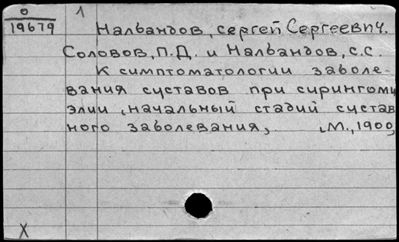 0
19679
1
Налбандов, Сергей Сергеевич.
Соловов, П.Д. и Налбандов, С.С.
К симптоматологии заболе-
вания суставов при сирингоми
элии, начальный стадий сустав
ного заболевания, , М., 1900,
X